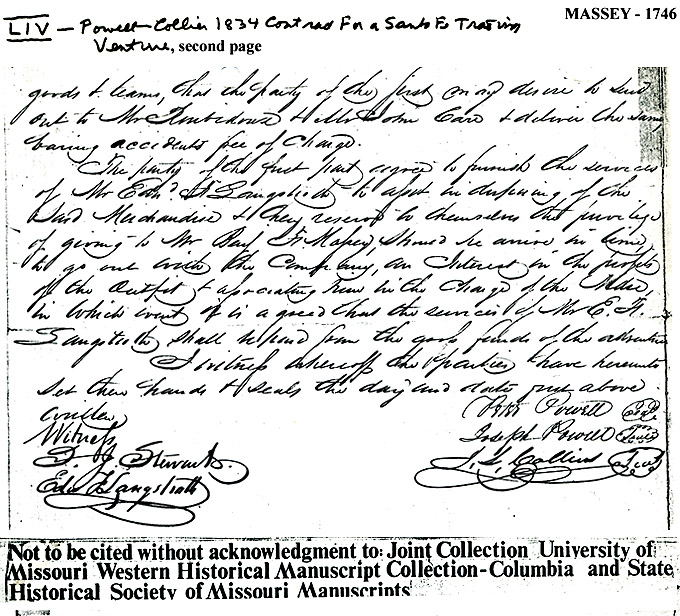 LIV – Powell-Collier 1834 Contract For a Santa Fe Trading
Venture, second page
MASSEY - 1746
goods & teams, that the party of the first may desire to send
out to Mr & Mr John Care & deliver the same
baring accidents free of Charge.
The party of the first part agree to furnish the services
of Mr Edwd F Langstroth to assist in disposing of the
Said Merchandise & they reserve to themselves the privilege
of giving to Mr Benj F Massey, Should he arrive in time
to go out with the Company, an Interest in the profits
of the Outfit & associating him in the Charge of the Mdse,
in which event it is agreed that the services of Mr E. F.
Langstroth shall be paid from the gross funds of the adventure
In witness whereof the parties have hereunto
Set their hands & seals the day and date first above
written
Witness
Powell
Joseph Powell
D. J. Stewart
J. G. Collier
Edw F Langstroth
Not to be cited without acknowledgment to: Joint Collection University of
Missouri Western Historical Manuscript Collection-Columbia and State
Historical Society of Missouri Manuscripts